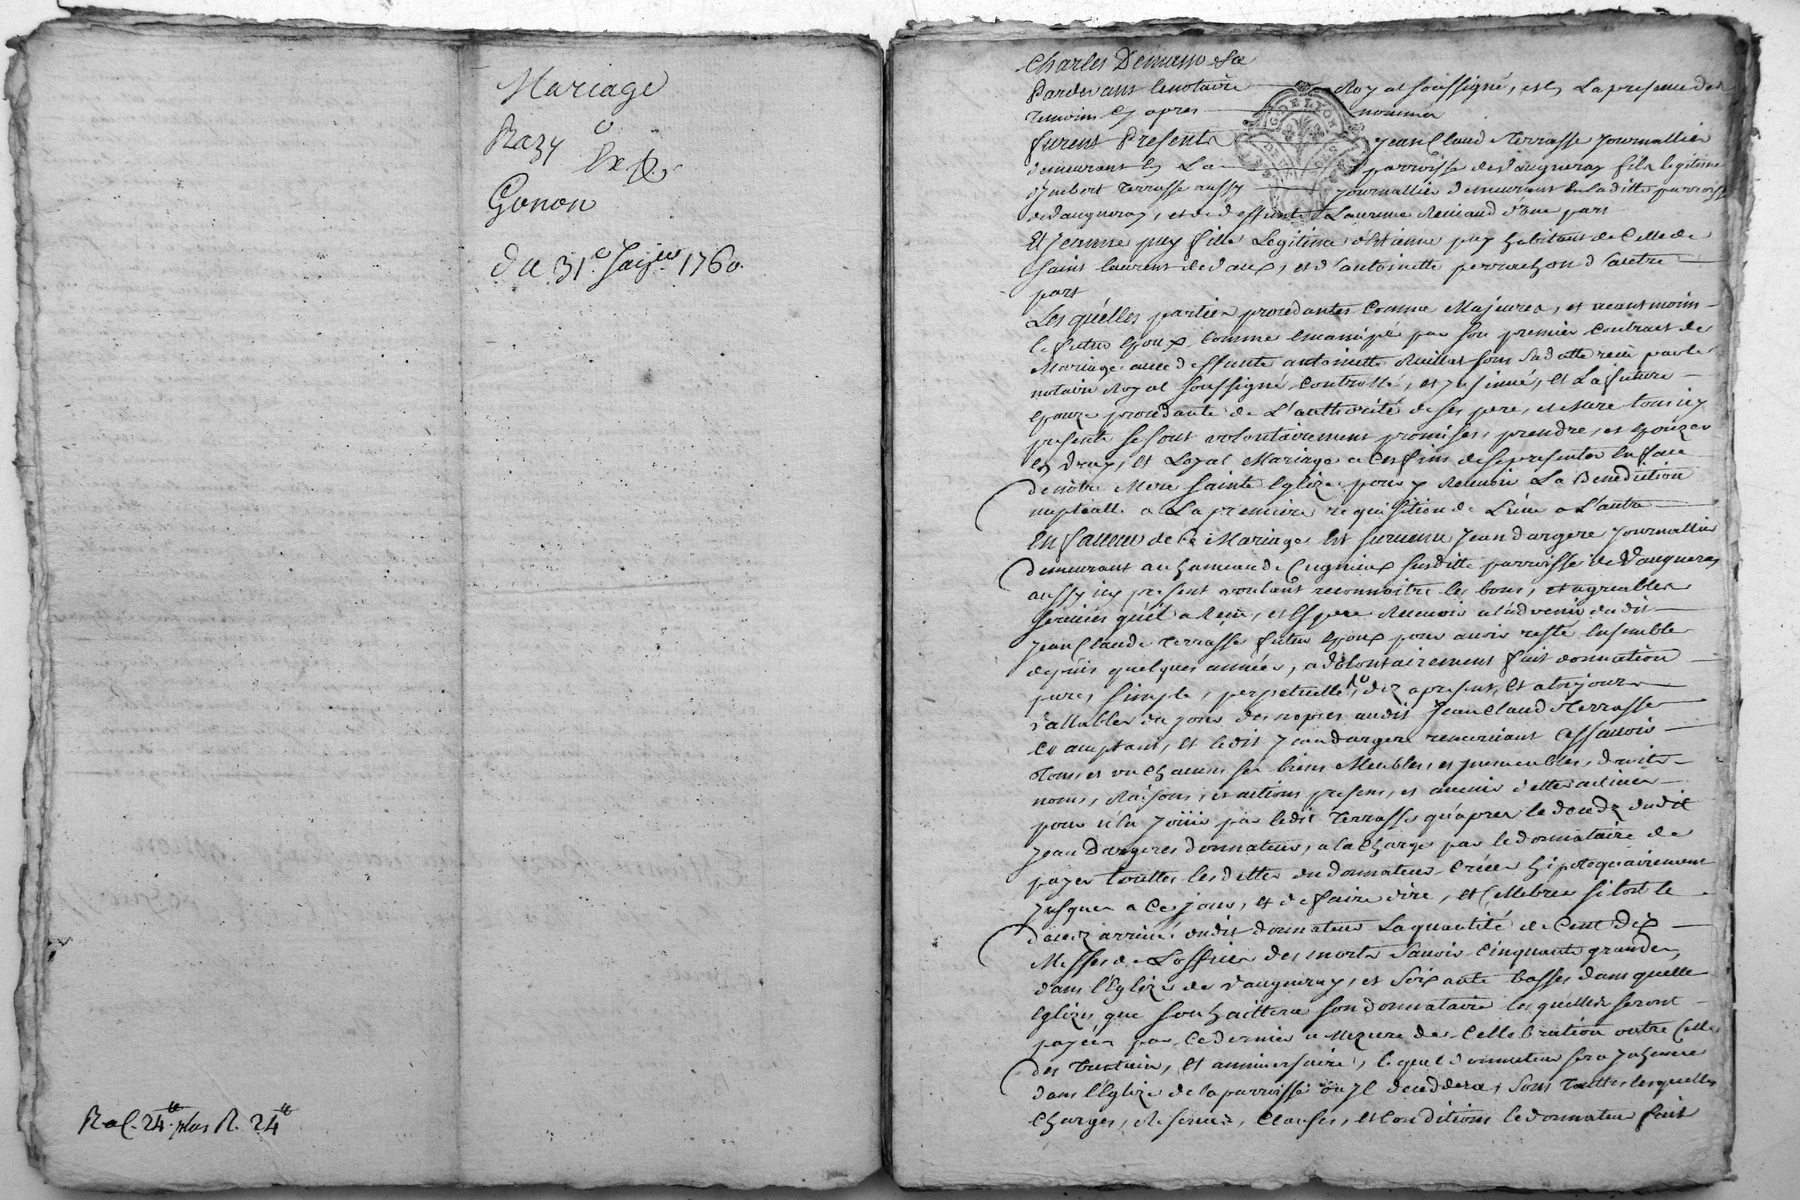 Mariage
Razy a
Gonon
du 31e Janjer 1760.
Rol. 24tt plus R. 24tt
Charles Demasso &a
Pardevant le notaire Royal soussigné, et en La presence des
temoins cy apres nommes
GDE LYON
furent Presents Jean Claude terrasse journallier
demeurant parroisse de Vaugneray fils legitime
terrasse journallier demeurant En La ditte parroisse
de Vaugneray, et de deffunte Laurence Reniaud d'Une part
Et Jeanne puy fille Legitime d'Etienne puy habitant de Celle de
saint laurent de Vaux, et d'antoinette perrachon d'autre
part
Les quélles parties procedantes Comme Majeures, et neantmoins
le futur Epoux Comme Emancipé par son premier Contract de
Mariage avec deffunte antoinette sous sa datte reçu par le
notaire Royal soussigné Controllé, et insinué, Et La future
Epouze procedante de L'authorité de ses pere, et Mere tous icy
presents se sont volontairement promises, prendre, et Epouzer
En Vray, Et Loyal Mariage a Ces fins de se presenter En face
de nôtre Mere sainte Eglize pour y Recevoir La Benediction
nuptialle a La premiere requisition de L'une a L'autre
En faveur de Ce Mariage Est survenu Jean dargere Journallier
demeurant au hameau de susditte parroisse de Vaugneray
aussy icy present voulant reconnoitre les bons, et agreables
services qu'il a Reçu, et Espere Recevoir a l'advenir du dit
Jean Claude terrasse futur Epoux pour avoir resté Ensemble
depuis quelques années, a Volontairement fait donnation
pure, simple, perpetuelle, dez a present, Et a toujours
Vallable du jour des nopces audit Jean Claude terrasse
acceptant, Et ledit Jean dargere remerciant assavoir
de tous et un chacuns ses biens Meubles, et immeubles, droits
noms, Raisons, et actions presens, et avenir dettes actives
pour n'En Joüir par ledit terrasse qu'apres le decedz dudit
Jean Dargeres donnateur, a la Charge par le donnataire de
payer touttes les dettes du donnateur Créées hipotequairement
Jusques a Ce jour, et de faire dire, et Cellebrer sitost le
decedz arrivé dudit donnateur La quantité de Cent Dix
Messes de Loffice des morts savoir Cinquante grandes
dans l'Eglize de Vaugneray, et Soixante basses dans quelle
Eglize que souhaittera son donnataire les quelles seront
payées par Ce dernier a Mezure de Cellebration outre Celle
des trentain, Et anniversaire, le quel donnateur sera Jnhumé
dans l'Eglize de la parroisse où Jl deceddera, sous touttes lesquelles
Charges, Reserves, Clauses, et Conditions le donnateur fait